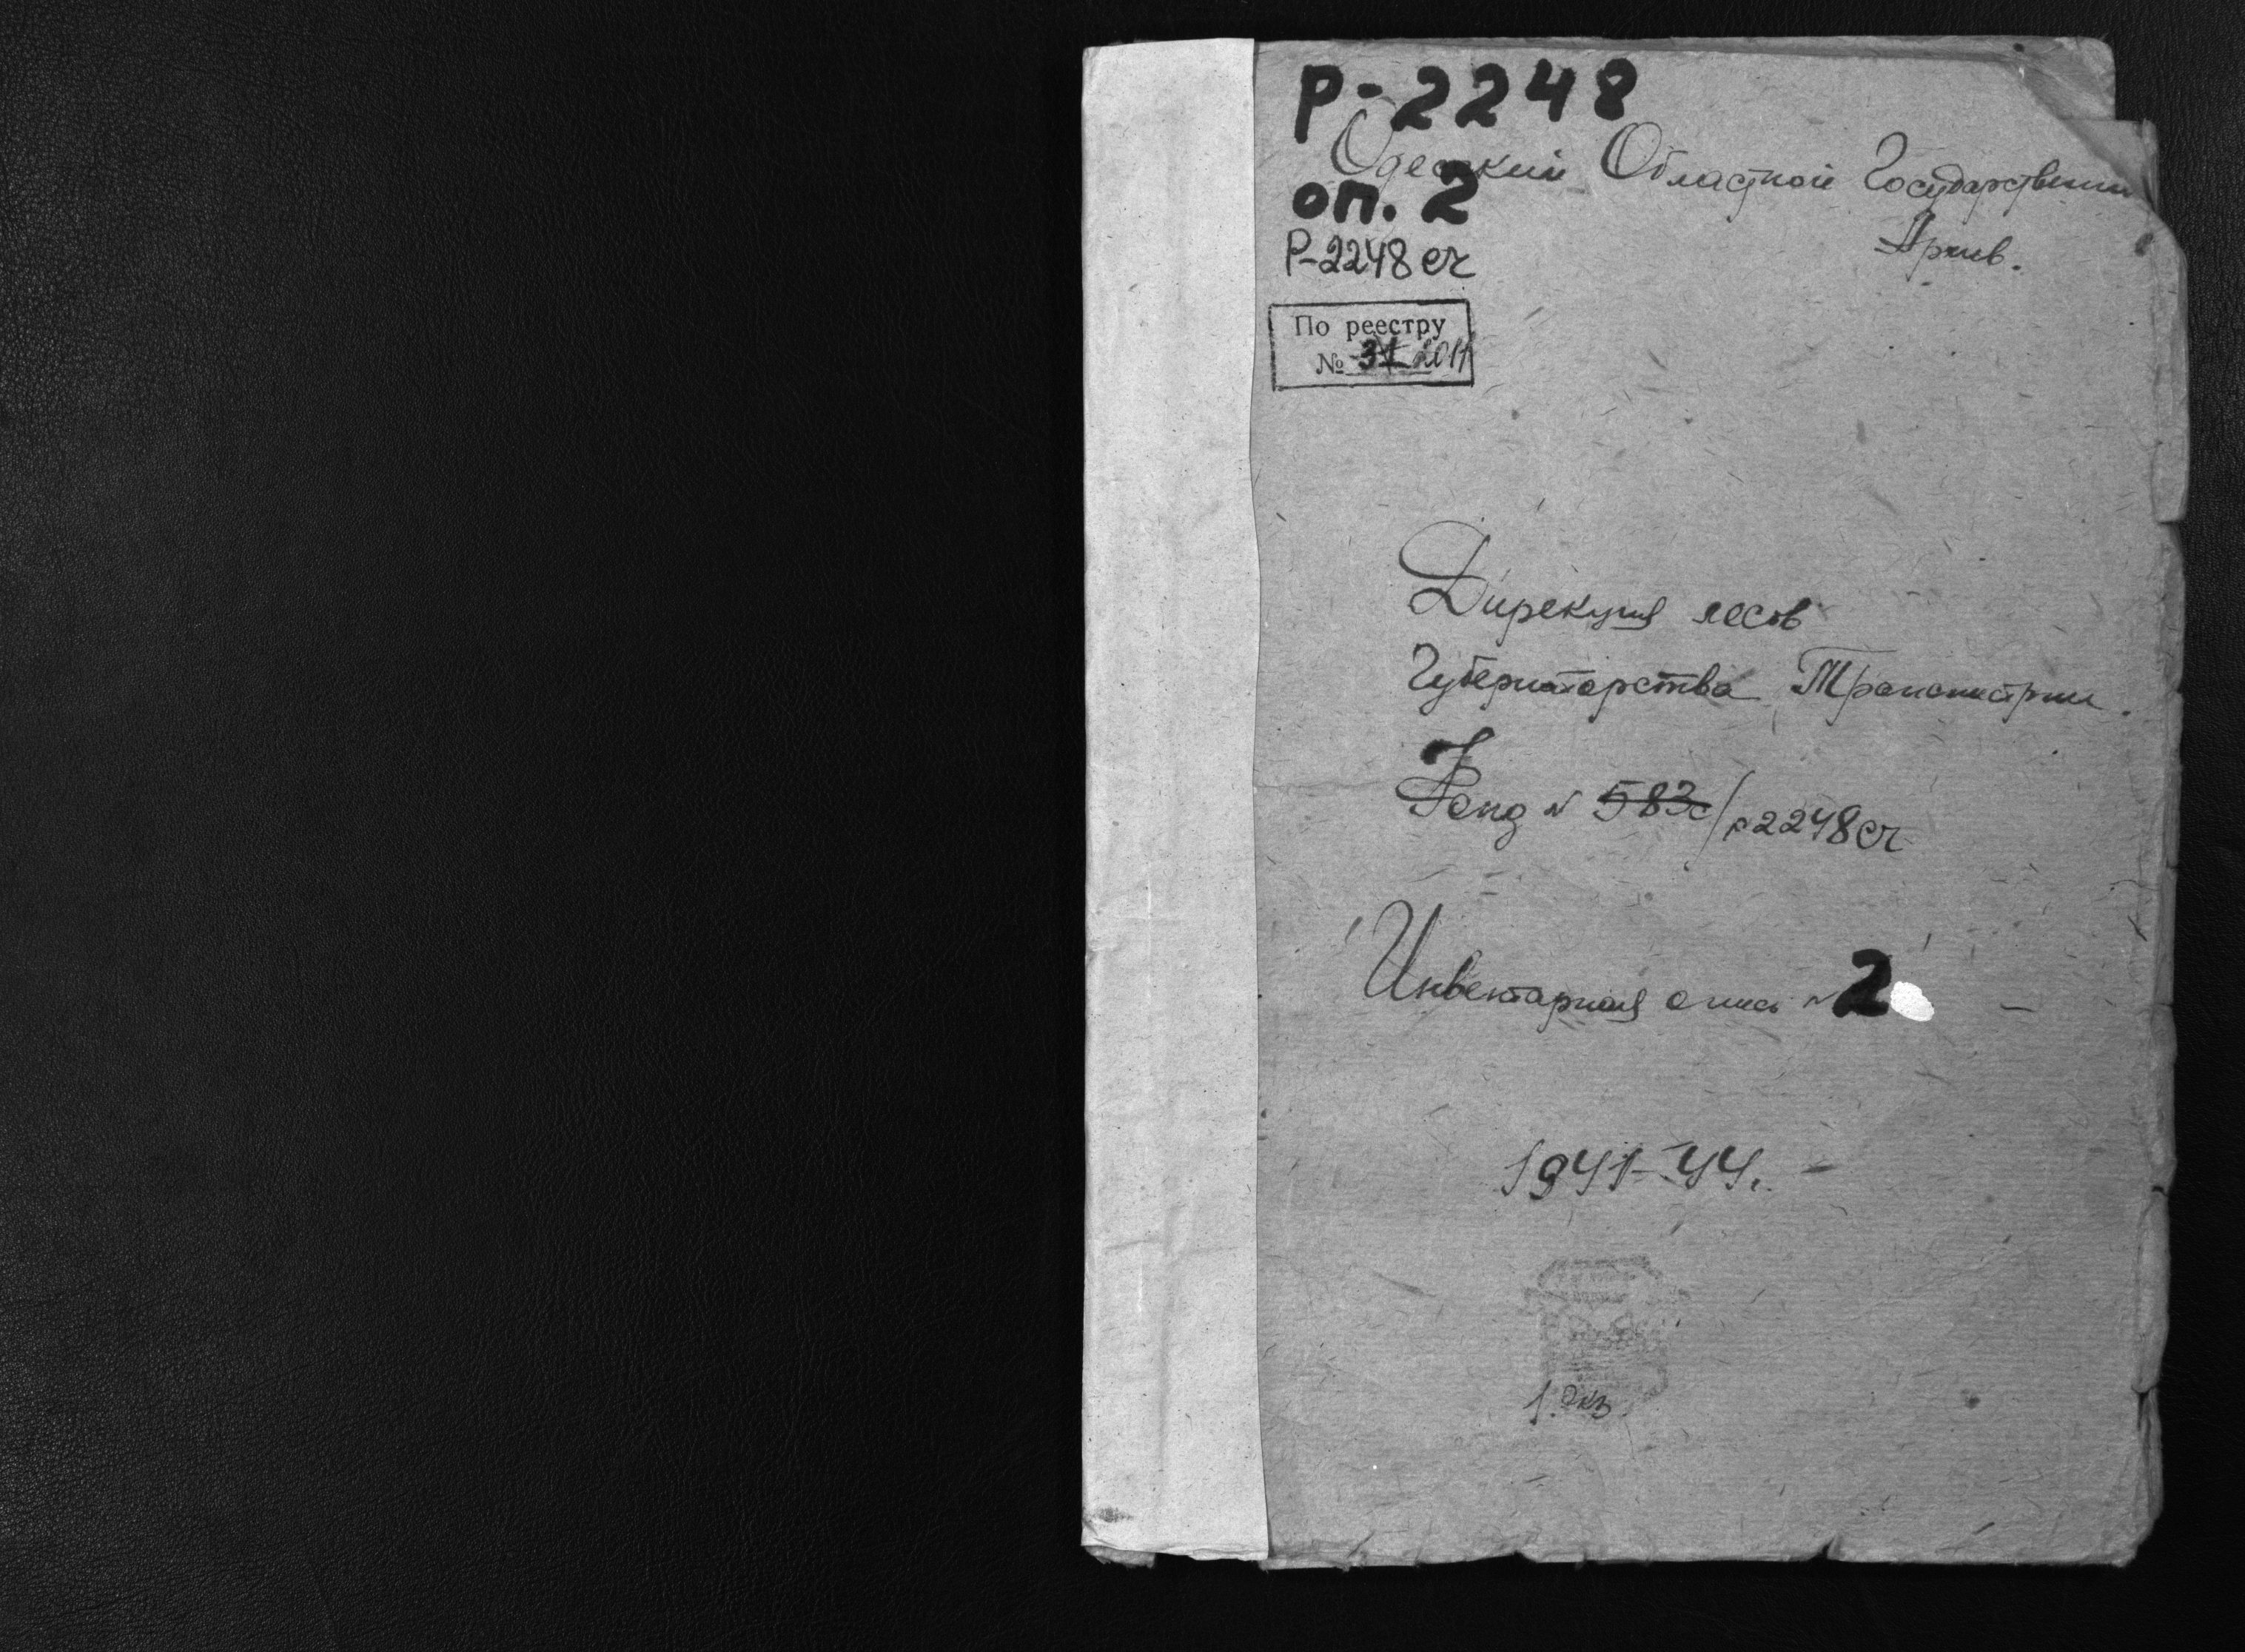 Р-2248
Одесский Областной Государственный
оп. 2
Архив.
Р-2248сч
По реестру
№ 31 2011
Дирекция лесов
Губернаторства Транснистрии.
Фонд № 583с/р2248сч
Инвентарная опись № 2
1941-44.
1. экз.